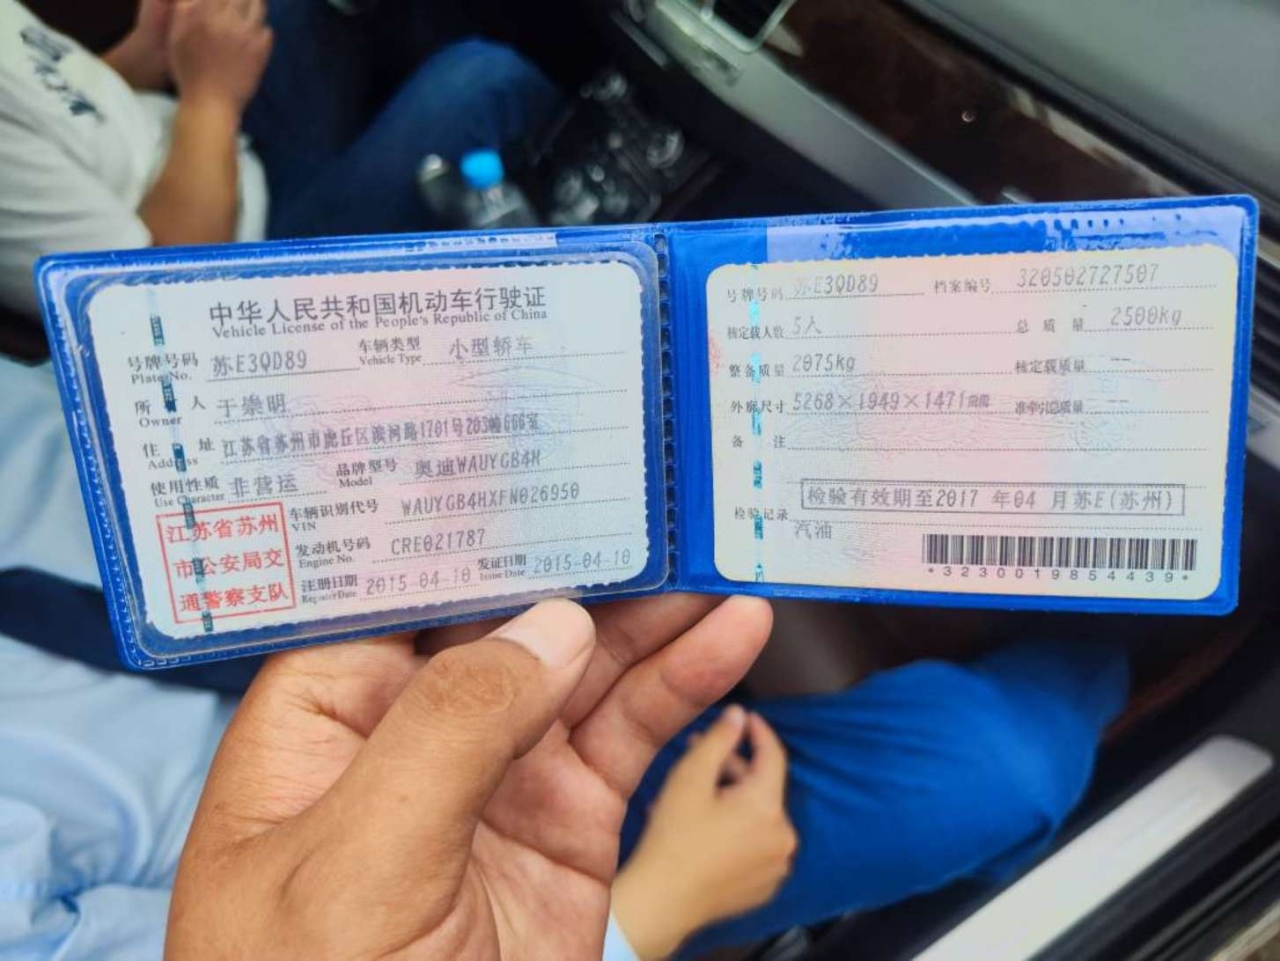 中华人民共和国机动车行驶证
Vehicle License of the People's Republic of China
号牌号码 苏E3QD89 车辆类型 小型轿车
Plate No. Vehicle Type
所 人 于崇明
Owner
住 址 江苏省苏州市虎丘区滨河路1701号203幢666室
Address
使用性质 非营运 品牌型号 奥迪WAUYGB4H
Use Character Model
江苏省苏州
市公安局交
通警察支队
车辆识别代号 WAUYGB4HXFN026950
VIN
发动机号码 CRE021787
Engine No.
注册日期 2015-04-10 发证日期 2015-04-10
Register Date Issue Date
号牌号码 苏E3QD89 档案编号 320502727507
核定载人数 5人 总质量 2500kg
整备质量 2075kg 核定载质量 --
外廓尺寸 5268×1949×1471mm 准牵引总质量 --
备 注
检验有效期至2017 年04 月苏E(苏州)
检验记录
汽油
*3230019854439*